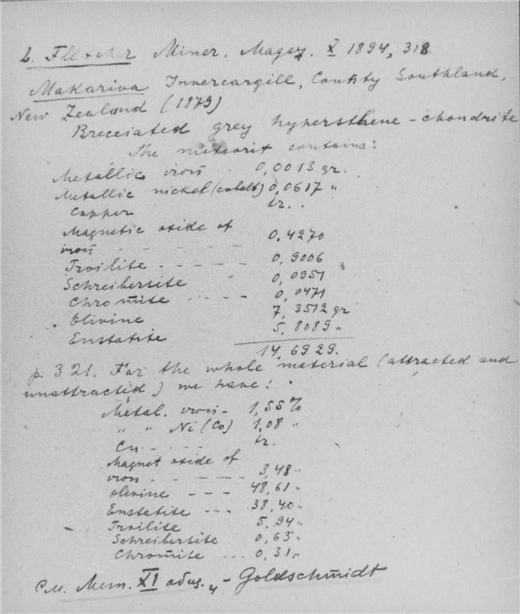 L. Fletcher Miner. Magaz. X 1894, 318.
Makariva Invercargill, County Southland,
New Zealand (1879)
Brecciated grey hypersthene-chondrite
The meteorit contains:
Metallic iron . 0,0013 gr.
Metallic nickel (cobalt) 0,0617 "
Copper tr. .
Magnetic oxide of
iron - - - - - 0,4270
Troilite - - - - - 0,9006
Schreibersite 0,0951
Chromite - - - - 0,0471
Olivine 7,3512 gr
Enstatite 5,8089 "
14,6929.
p. 321. For the whole material (attracted and
unattracted) we have:
Metal. iron - 1,55%
" " Ni (Co) 1,08 "
Cu - - - - tr.
Magnet oxide of
iron - - - - - 3,48 "
Olivine - - - 48,61 "
Enstatite - - - 38,40 "
Troilite 5,94 "
Schreibersite 0,63 "
Chromite - - - 0,31 "
См. Mem. XI - Goldschmidt